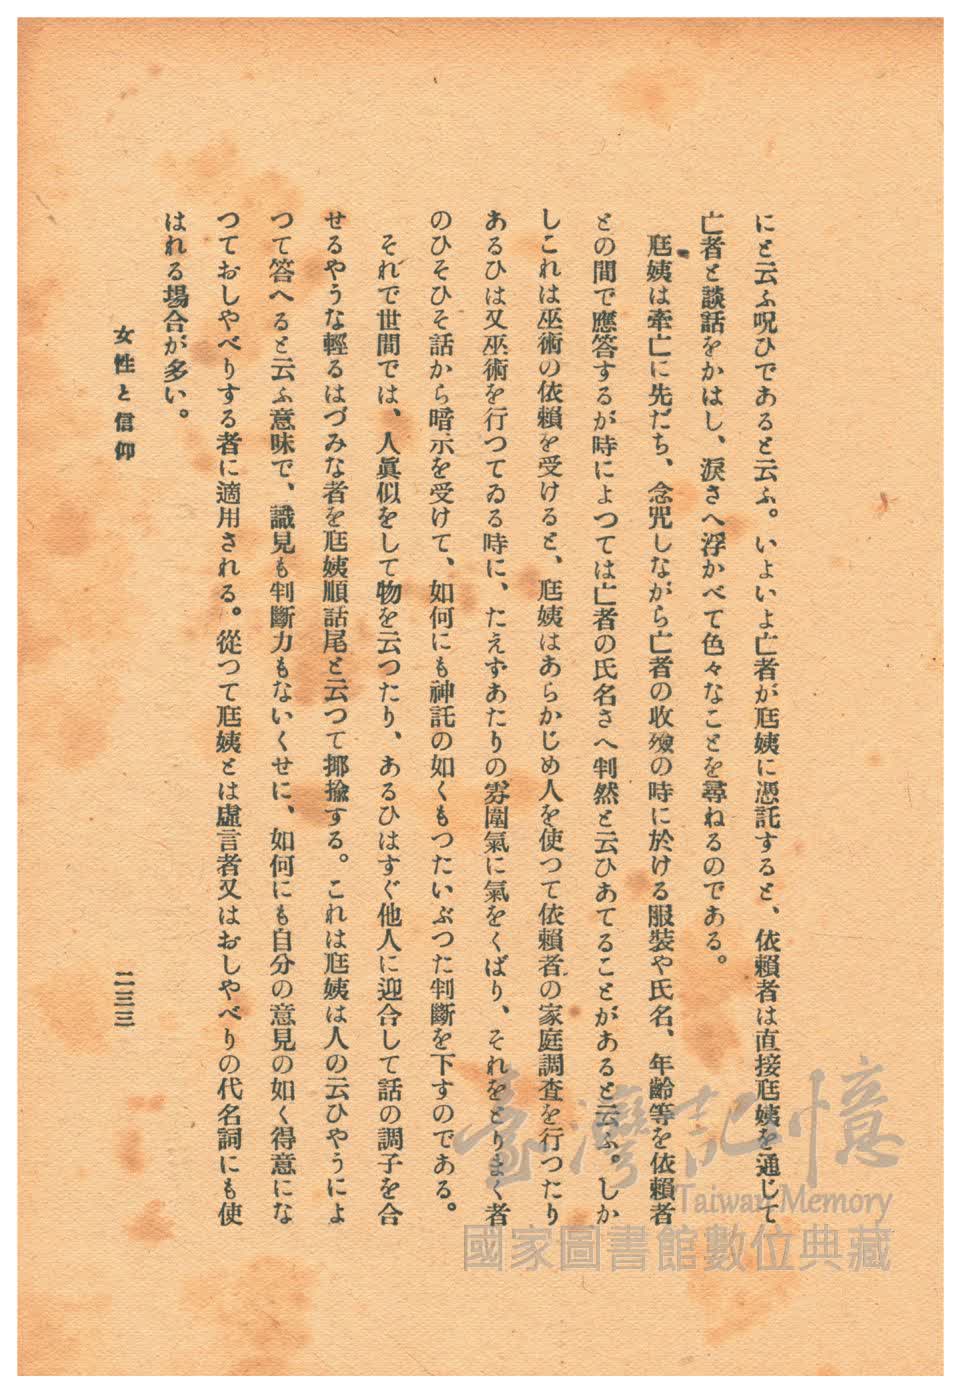 にと云ふ呪ひであると云ふ。いよいよ亡者が尫姨に憑託すると、依賴者は直接尫姨を通じて
亡者と談話をかはし、淚さへ浮かべて色々なことを尋ねるのである。
尫姨は牽亡に先だち、念咒しながら亡者の收殮の時に於ける服裝や氏名、年齡等を依賴者
との間で應答するが時によつては亡者の氏名さへ判然と云ひあてることがあると云ふ。しか
しこれは巫術の依賴を受けると、尫姨はあらかじめ人を使つて依賴者の家庭調査を行つたり
あるひは又巫術を行つてゐる時に、たえずあたりの雰圍氣に氣をくばり、それをとりまく者
のひそひそ話から暗示を受けて、如何にも神託の如くもつたいぶつた判斷を下すのである。
それで世間では、人眞似をして物を云つたり、あるひはすぐ他人に迎合して話の調子を合
せるやうな輕るはづみな者を尫姨順話尾と云つて揶揄する。これは尫姨は人の云ひやうによ
つて答へると云ふ意味で、識見も判斷力もないくせに、如何にも自分の意見の如く得意にな
つておしやべりする者に適用される。從つて尫姨とは虛言者又はおしやべりの代名詞にも使
はれる場合が多い。
女性と信仰
二三三
臺灣記憶
Taiwan Memory
國家圖書館數位典藏